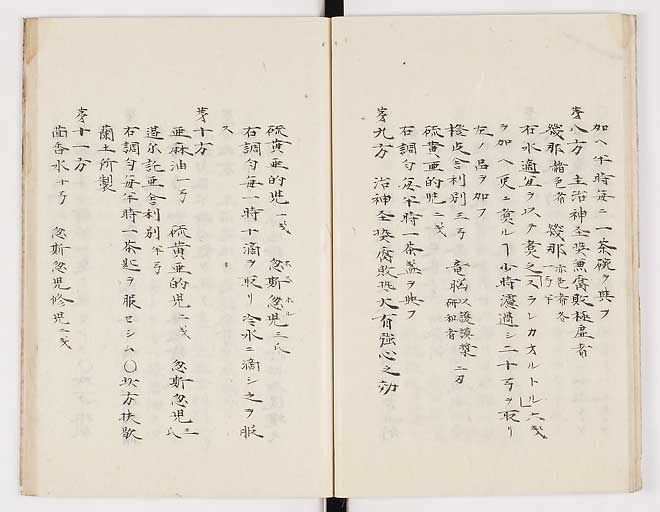 加ヘ半時毎ニ一茶碗ヲ與フ
第八方 主治神全噐無腐敗極虚者
幾那 赭色者 幾那 赤色者各一ヲ
右水適宜ヲ以テ煑之スランカオルトル六戔
ヲ加ヘ更ニ煑ル丨少時濾過シ二十ヲヲ取リ
左ノ品ヲ加フ
橙皮舎利別三ヲ 竜脳 以護謨漿研和者 二刃
硫黄亜的児二戔
右調匀毎半時一茶盞ヲ與フ
第九方 治神全噐腐敗此火有強心之効
硫黄亜的児一戔 忽斯忽児三氏
ホ フ ホ ル
右調匀毎一時十滴ヲ取リ冷水ニ滴シ之ヲ服
ス
第十方
亜麻油一ヲ 硫黄亜的児二戔 忽斯忽児三氏
蓬尓託亜舎利別半ヲ
右調匀毎半時一茶匙ヲ服セシム〇此方扶歇
蘭土所製
第十一方
茴香水十ヲ 忽斯忽児修児一戔